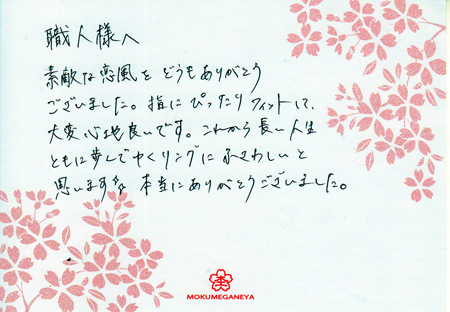 職人様へ
素敵な恋風をどうもありがとう
ございました。指にぴったりフィットして、
大変心地良いです。これから長い人生
ともに歩んでゆくリングにふさわしいと
思います 本当にありがとうございました。
杢
MOKUMEGANEYA